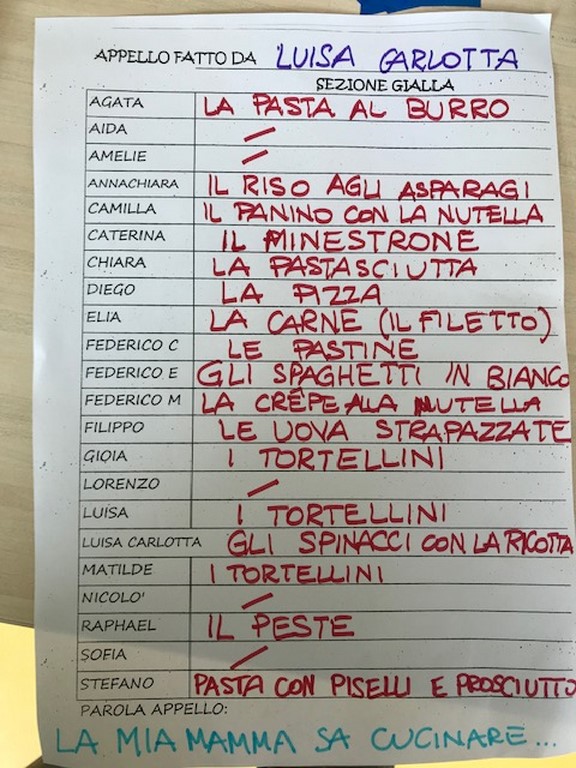 APPELLO FATTO DA LUISA CARLOTTA
SEZIONE GIALLA
AGATA LA PASTA AL BURRO
AIDA /
AMELIE /
ANNACHIARA IL RISO AGLI ASPARAGI
CAMILLA IL PANINO CON LA NUTELLA
CATERINA IL MINESTRONE
CHIARA LA PASTASCIUTTA
DIEGO LA PIZZA
ELIA LA CARNE (IL FILETTO)
FEDERICO C LE PASTINE
FEDERICO E GLI SPAGHETTI IN BIANCO
FEDERICO M LA CRÊPE ALA NUTELLA
FILIPPO LE UOVA STRAPAZZATE
GIOIA I TORTELLINI
LORENZO /
LUISA I TORTELLINI
LUISA CARLOTTA GLI SPINACCI CON LA RICOTTA
MATILDE I TORTELLINI
NICOLO' /
RAPHAEL IL PESTE
SOFIA /
STEFANO PASTA CON PISELLI E PROSCIUTTO
PAROLA APPELLO:
LA MIA MAMMA SA CUCINARE...